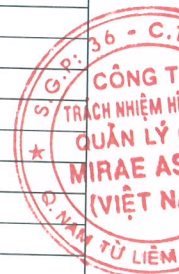 S.G.P: 36 - C.T
CÔNG T
TRÁCH NHIỆM H
QUẢN LÝ
MIRAE AS
(VIỆT NA
Q. NAM TỪ LIÊM